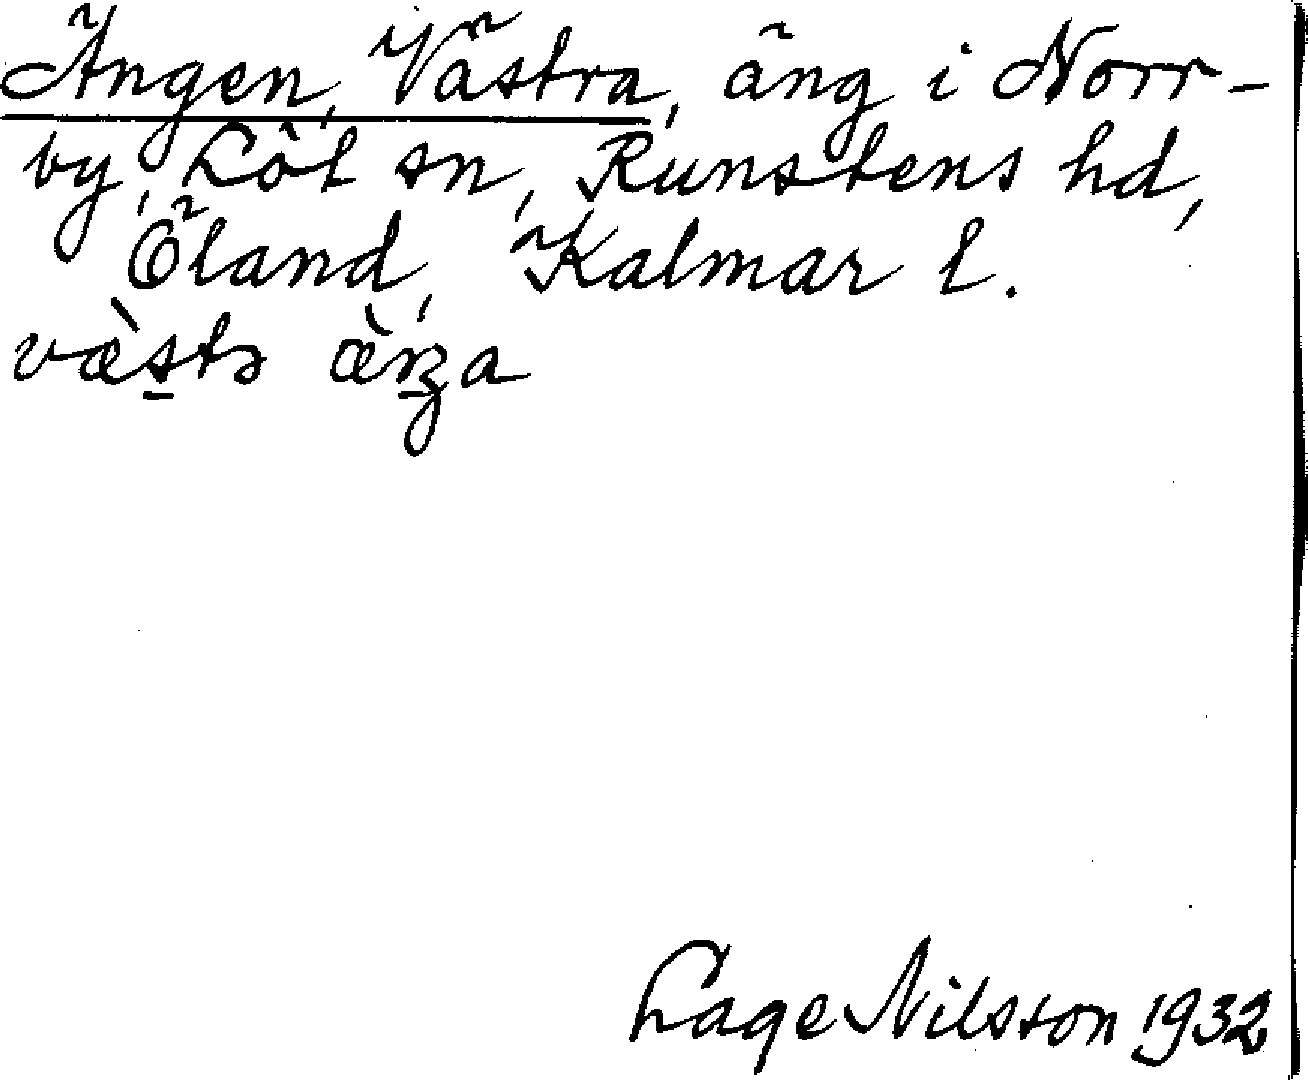 Ängen, Västra, äng i Norr-
by, Löt sn, Runstens hd,
Öland, Kalmar l.
Lage Nilsson 1932